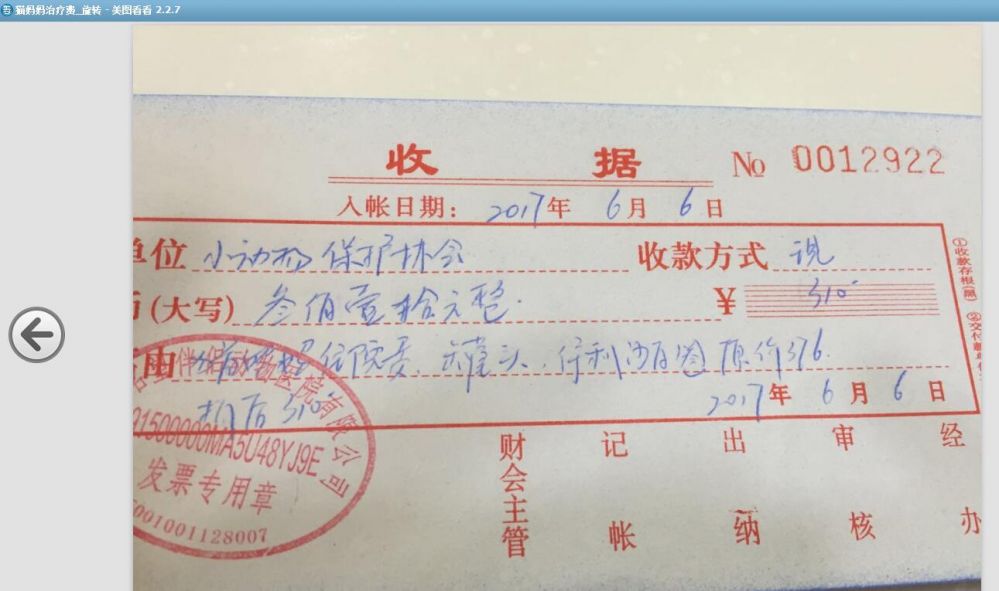 猫妈妈治疗费_旋转 - 美图看看 2.2.7
收 据 № 0012922
入帐日期: 2017年 6月 6日
单位 小动物保护协会 收款方式 现
币(大写) 叁佰壹拾元整. ¥ 310
由 猫妈妈住院费、罐头、伊利沙白圈 原价376.
折后310
2017年 6月 6日
伴侣动物医院有限公司
91500000MA5U48YJ9E
发票专用章
5001001128007
财会主管 记帐 出纳 审核 经办
①收款存根(黑) ②交付款单位